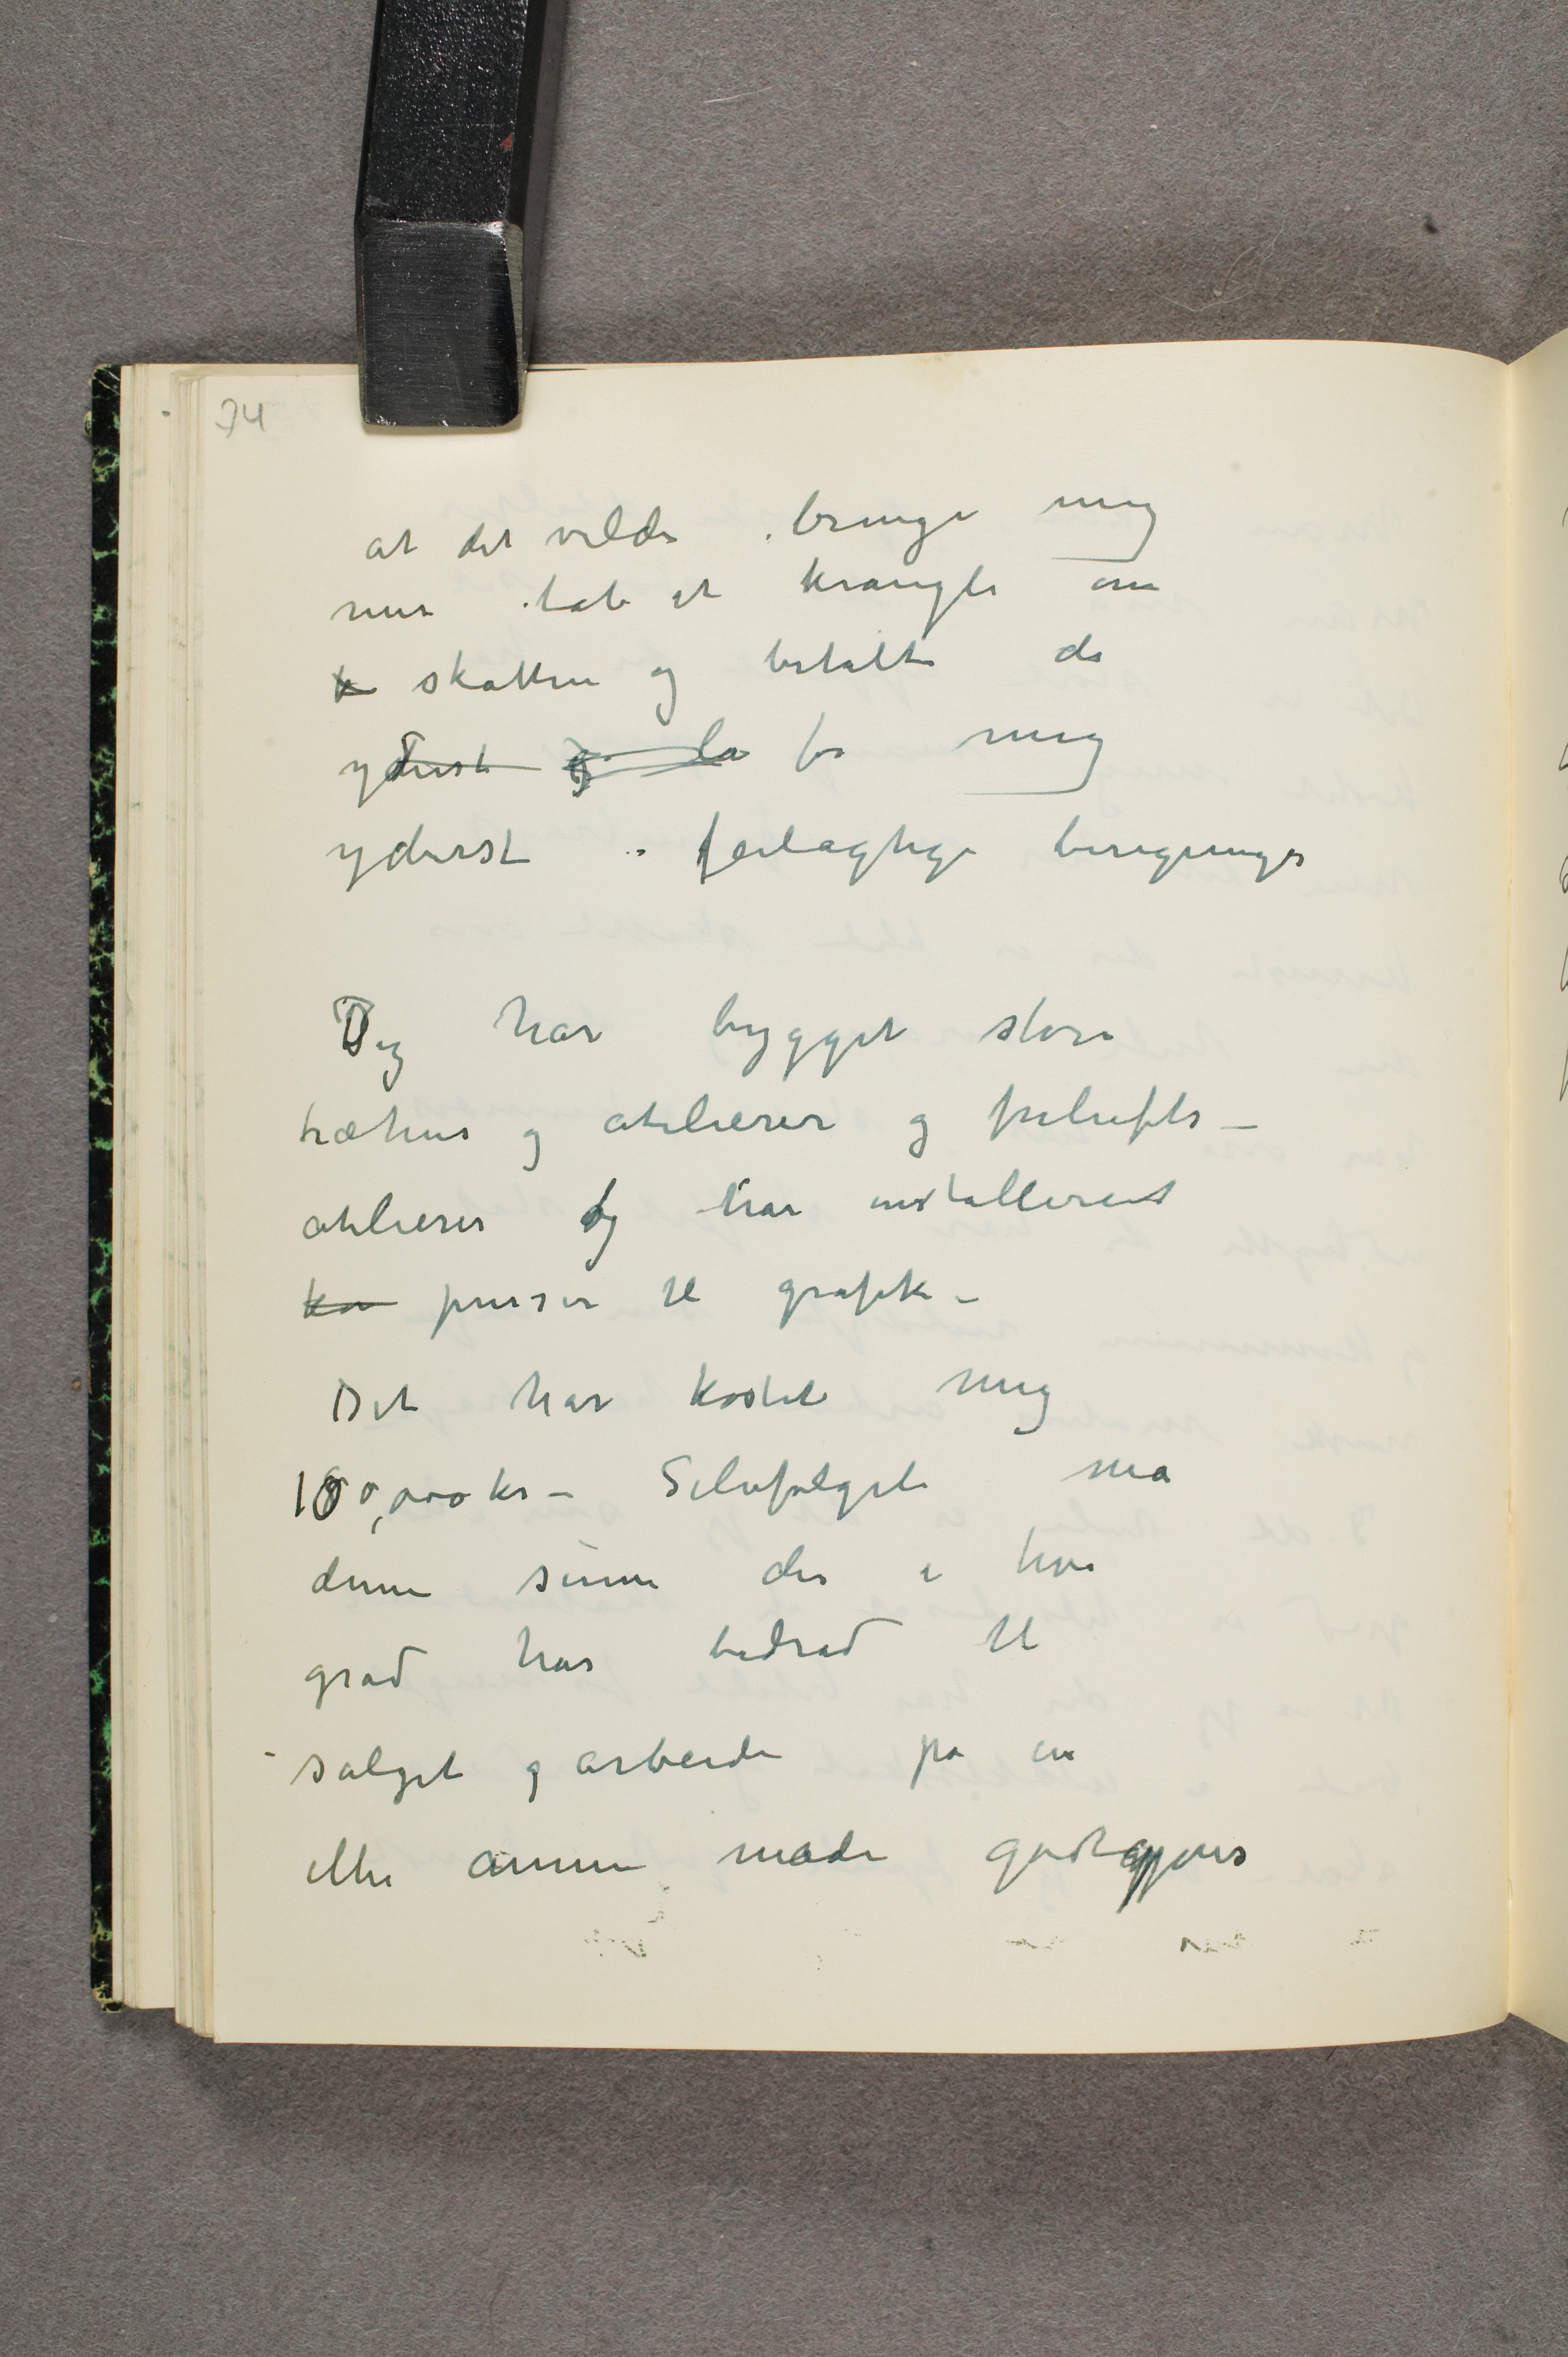 74
at det vilde bringe mig
mer tab at krangle om
k skatten og betalte de
yderst og la for mig
yderst feilagtige beregninger
Jeg har bygget store
træhus og atelierer og frilufts–
atelierer Og har installeret
ka presser til grafik –
Det har kostet mig
100,000 kr – Selvfølgeli må
denne summe der i hvø
grad har bidrad til
salget og arbeide på en
eller annen måde godtgjøres